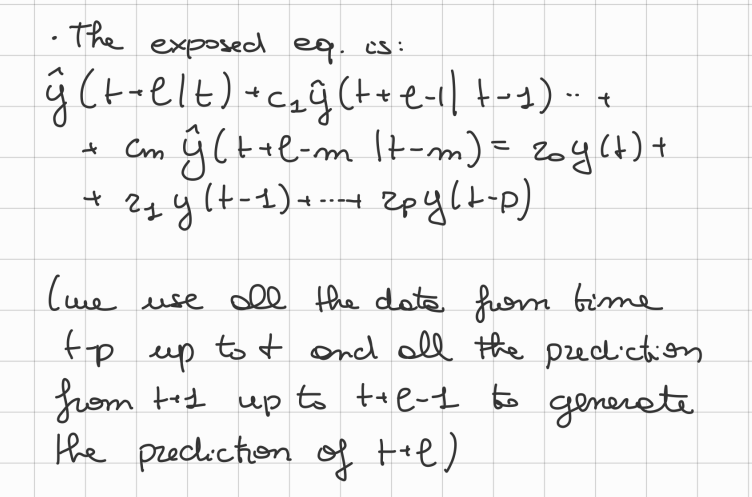 · The exposed eq. is:
ŷ(t+ℓ|t) + c₁ŷ(t+ℓ-1|t-1) ·· +
+ cm ŷ(t+ℓ-m|t-m) = r₀y(t) +
+ r₁ y(t-1) + ···+ rpy(t-p)
(we use all the data from time
t-p up to t and all the prediction
from t+1 up to t+ℓ-1 to generate
the prediction of t+ℓ)